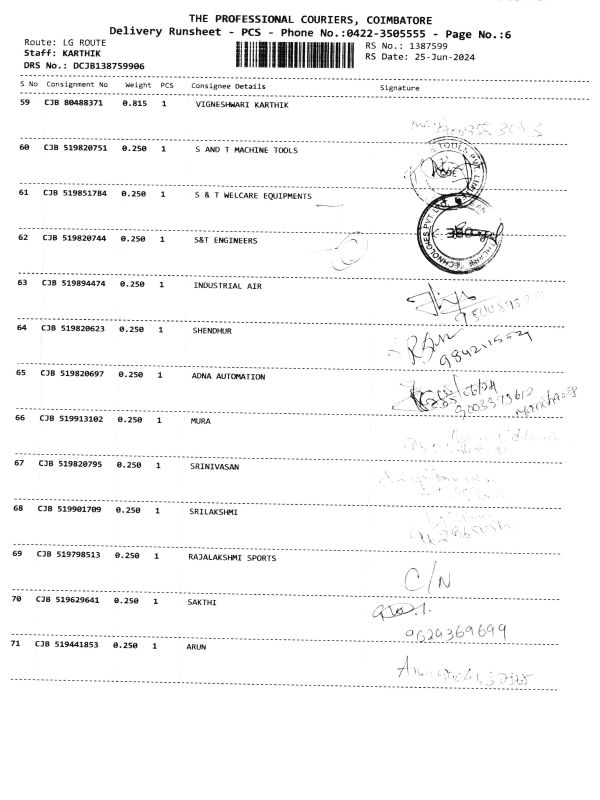 THE PROFESSIONAL COURIERS, COIMBATORE
Delivery Runsheet - PCS - Phone No.:0422-3505555 - Page No.:6
Route: LG ROUTE
RS No.: 1387599
Staff: KARTHIK
RS Date: 25-Jun-2024
DRS No.: DCJB138759906
S No Consignment No Weight PCS Consignee Details Signature
59 CJB 80488371 0.815 1 VIGNESHWARI KARTHIK
60 CJB 519820751 0.250 1 S AND T MACHINE TOOLS
61 CJB 519851784 0.250 1 S & T WELCARE EQUIPMENTS
62 CJB 519820744 0.250 1 S&T ENGINEERS
63 CJB 519894474 0.250 1 INDUSTRIAL AIR
64 CJB 519820623 0.250 1 SHENDHUR
65 CJB 519820697 0.250 1 ADNA AUTOMATION
66 CJB 519913102 0.250 1 MURA
67 CJB 519820795 0.250 1 SRINIVASAN
68 CJB 519901709 0.250 1 SRILAKSHMI
69 CJB 519798513 0.250 1 RAJALAKSHMI SPORTS
C/N
70 CJB 519629641 0.250 1 SAKTHI
9629369699
71 CJB 519441853 0.250 1 ARUN